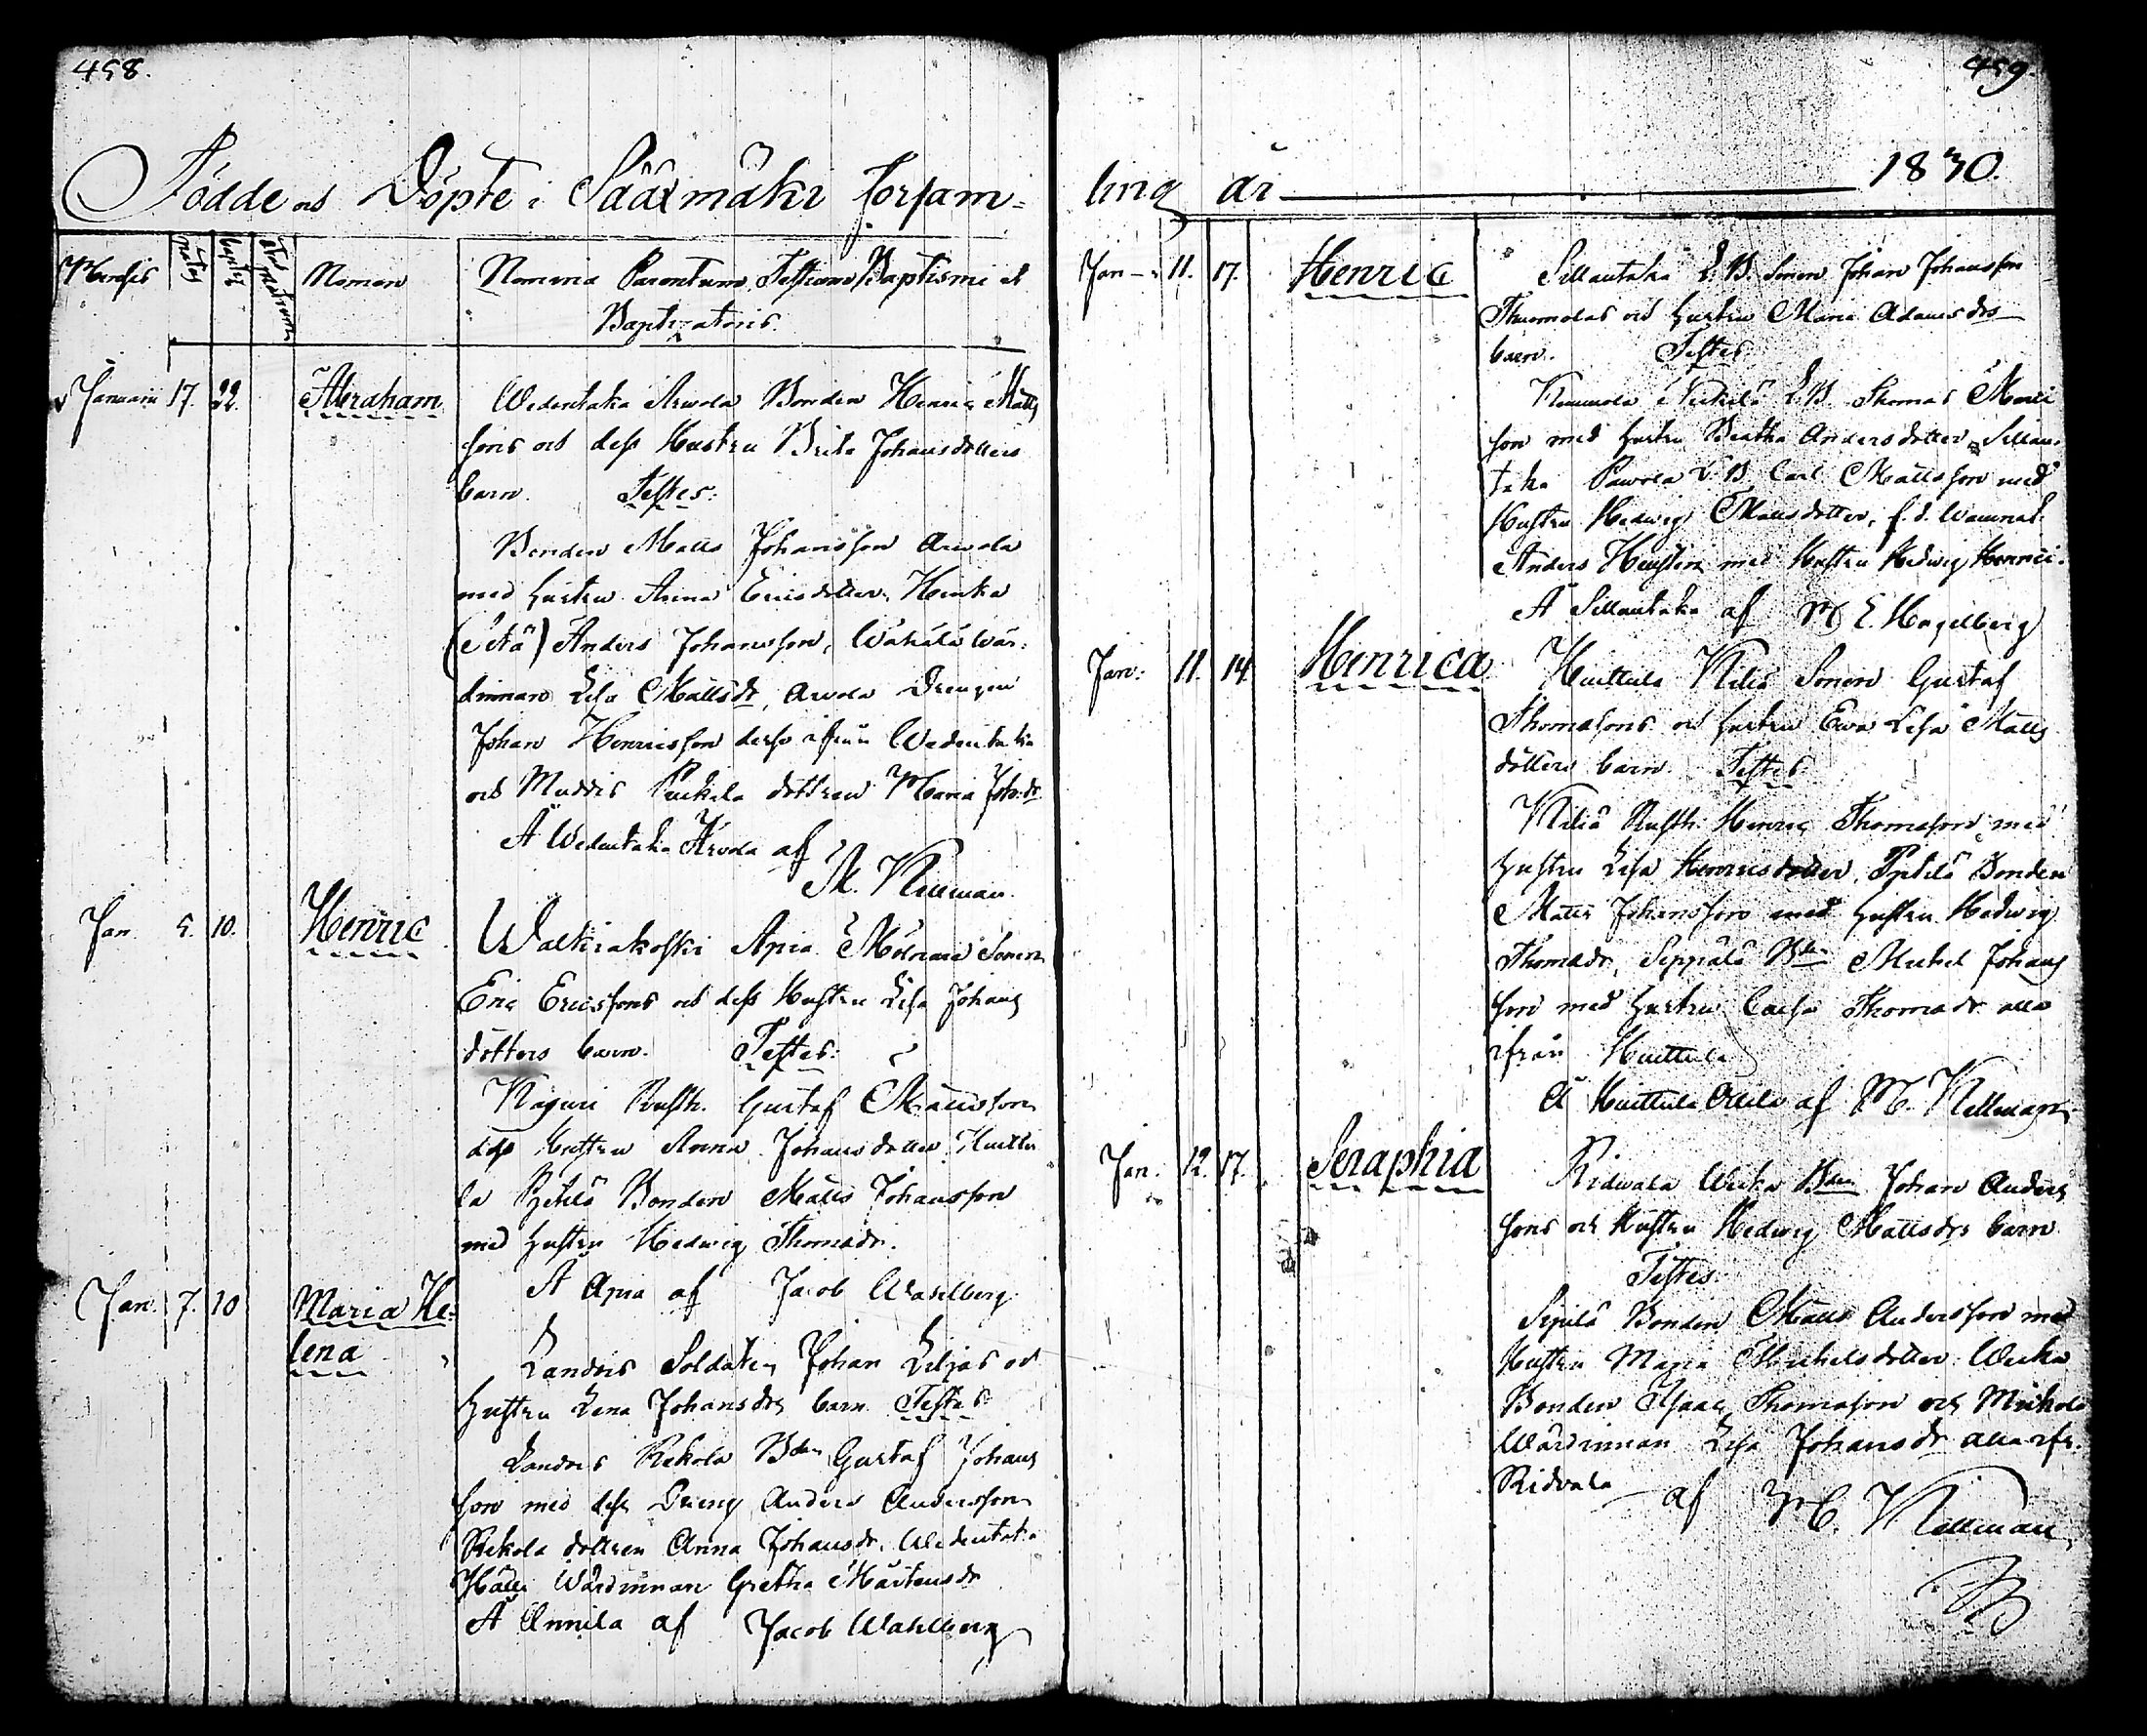 458.
Födde och Döpte i Sääxmäki Forsam-
Mensis
natus
bapts
Nomen
Nomina Parentum, Testium Baptismi et
Baptizatoris.
Januarii 17. 22. Abraham
Wedentaka Arvola Bonden Henric Matts
sons och dess Hustru Brita Johansdotters
barn. Testes:
Bonden Matts Johansson Arvola
med hustru Anna Ericsdotter, Henka
Anders Johansson, Wähälä Wär-
dinnan Lisa Mattsdr, Arvola Drengen
Johan Henricsson desse ifrån Wedentaka
och Muddis Puckala dottren Maria Joh:dr
Å Wedentaka Arvola af
M. Killman.
Jan. 5. 10. Henric
Walkiakoski Apia Möllnare Sonen
Eric Ericssons och dess Hustru Lisa Johans
dotters barn. Testes:
Kaguri Rusth. Gustaf Mattsson
dess hustru Anna Johansdotter Huittu
la Pehtlä Bonden Matts Johansson
med hustru Hedwig Thomasdr.
Å Apia af Jacob Wahlberg
Jan. 7. 10 Maria He-
lena
Landois Soldaten Johan Liljas och
hustru Lena Johansdrs barn. Testes:
Landois Rekola Bden Gustaf Johans
son med dess Dreng Anders Andersson
Rekola dottren Anna Johansdr. Wedentaka
Wärdinnan Gretha Mårtensdr
Å Annila af Jacob Wahlberg
459.
ling år 1830.
Jan 11. 17. Henric
Sillantaka Sonen Johan Johansson
och hustru Maria Adamsdrs
barn. Testes:
Thomas
son med hustru Beatha Andersdotter, Sillan-
taka Pawola Carl Mattsson med
Hustru Hedwig Mattsdotter, f. d.
Anders med Hustru Hedwig Henrici.
Å Sillantaka af M E. Hagelberg
Jan: 11. 14. Henrica
Huittula Kiliä Sonen Gustaf
Thomasons och hustru Ewa Lisa Matts
dotters barn. Testes:
Kiliä Rusth. Henric Thomasson med
hustru Lisa Henricsdotter, Pehtlä Bonden
Matts Johansson med hustru Hedwig
Thomasdr, Seppälä Bden Michel Johans
son med hustru Caisa Thomasdr alla
ifrån Huittula
Å Huittula Ollila af M. Killman
Jan. 12. 17. Seraphia
Ridvala Uska Bden Johan Anders
sons och Hustru Hedwig Mattsdrs barn
Testes:
Sipilä Bonden Matts Andersson med
Hustru Maria Michelsdotter. Uska
Bonden Isaac Thomasson och Mickola
Wärdinnan Lisa Johansdr alla ifr.
Ridvala af M. Killman